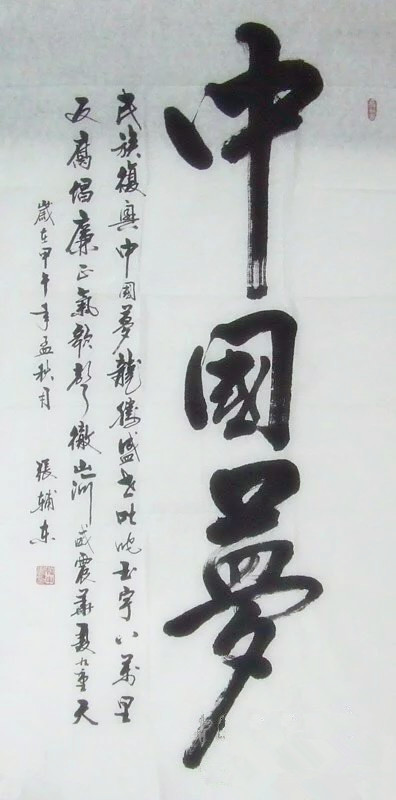 中國夢
民族復興中國夢龍騰盛世叱咤玉宇八萬里
反腐倡廉正氣歌聲徹山河威震華夏九重天
歲在甲午年孟秋月 張輔東